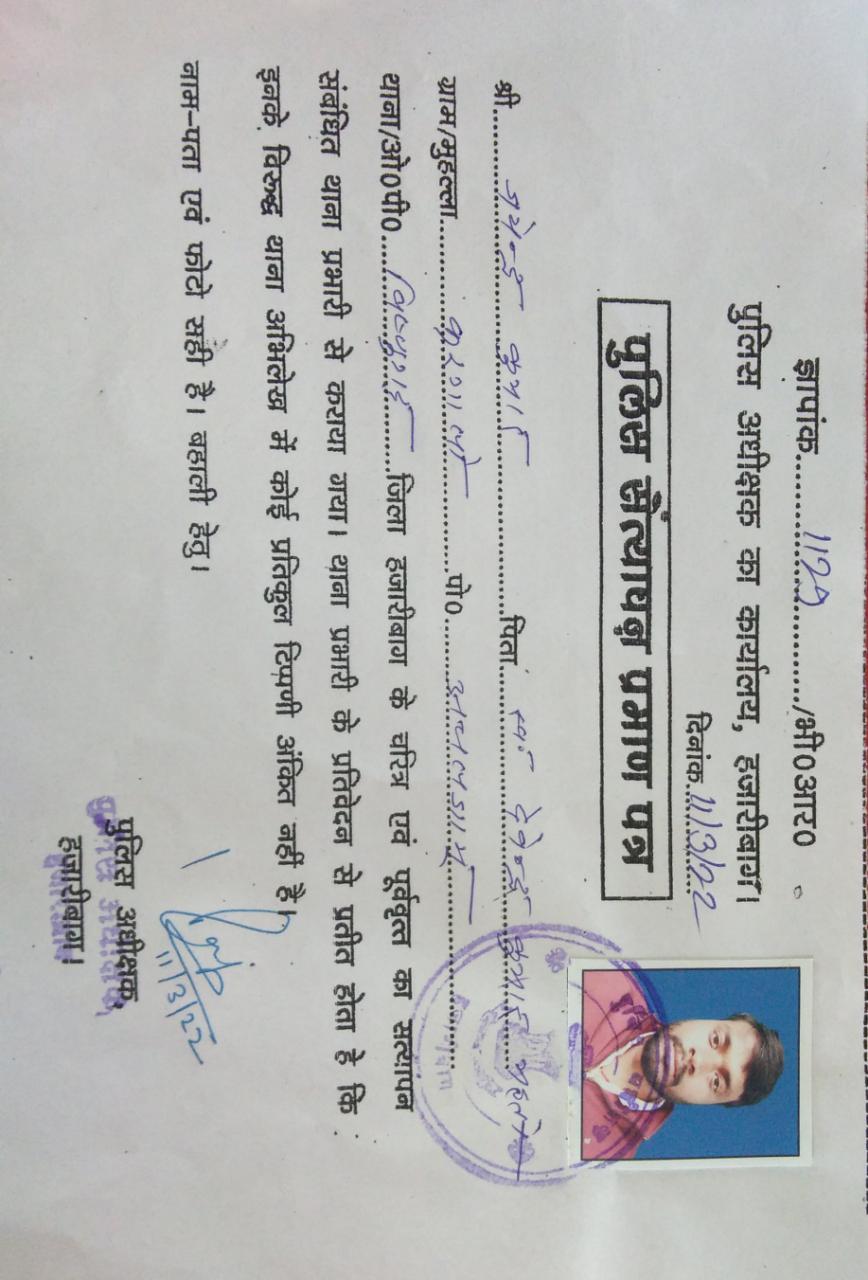 ज्ञापांक..........1125............/भी0आर0
पुलिस अधीक्षक का कार्यालय, हजारीबाग।
दिनांक..11/3/22
पुलिस सत्यापन प्रमाण पत्र
श्री.......... कुमार ..........पिता स्व० देवेन्द्र कुमार महतो
ग्राम/मुहल्ला....................पो0....................
थाना/ओ0पी0...विष्णुगढ़...जिला हजारीबाग के चरित्र एवं पूर्ववृत्त का सत्यापन
संबंधित थाना प्रभारी से कराया गया। थाना प्रभारी के प्रतिवेदन से प्रतीत होता है कि
इनके विरुद्ध थाना अभिलेख में कोई प्रतिकुल टिप्पणी अंकित नहीं है।
नाम-पता एवं फोटो सही है। बहाली हेतु।
11/3/22
पुलिस अधीक्षक,
हजारीबाग।